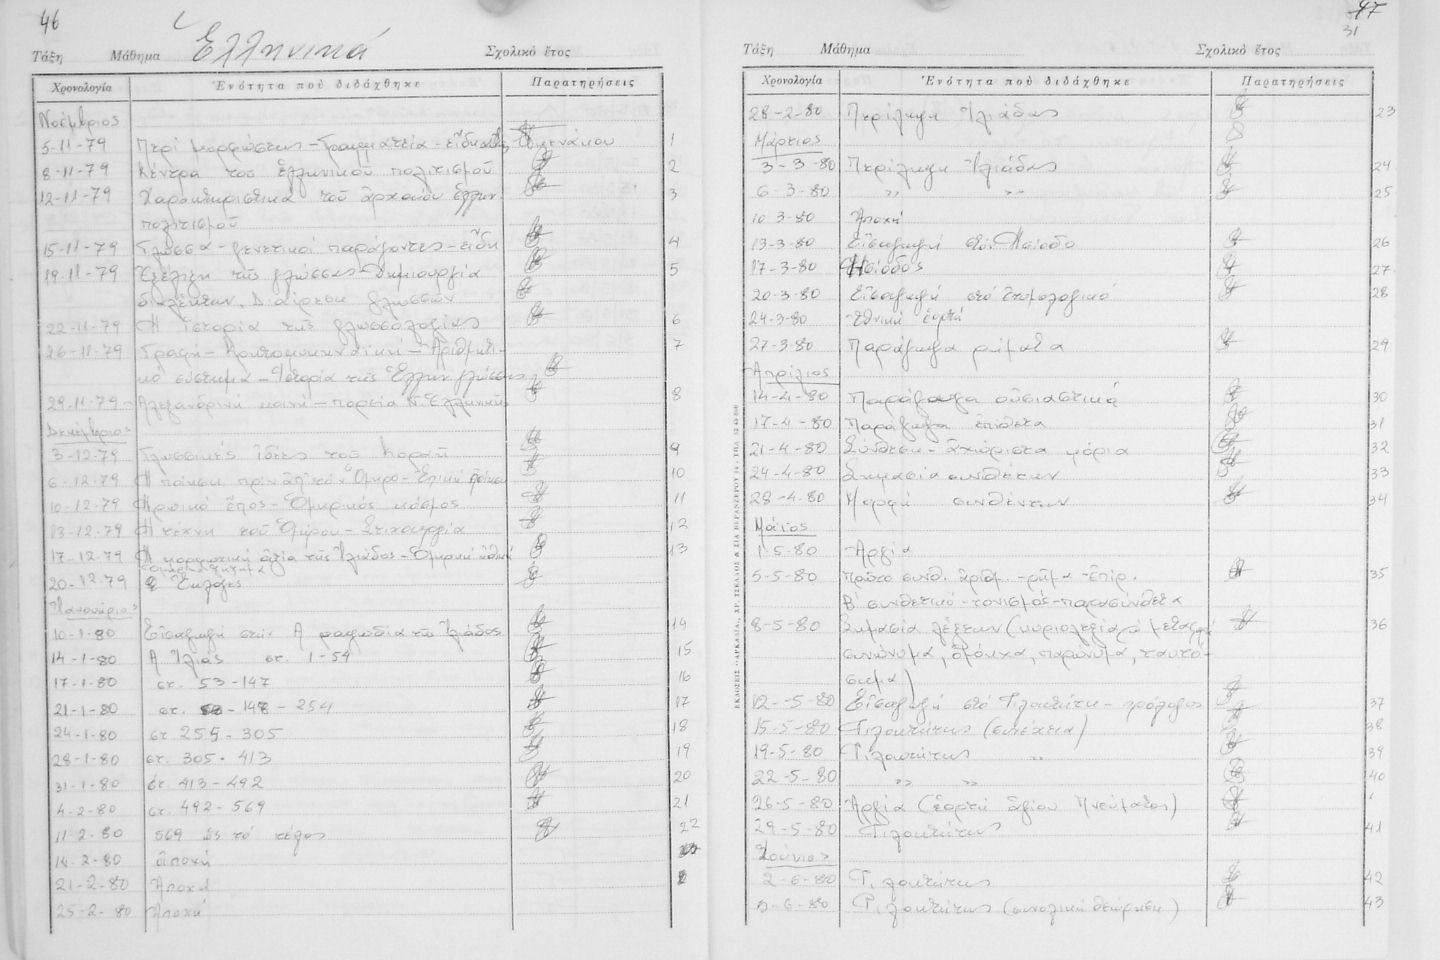 46
Τάξη Μάθημα Ἑλληνικά Σχολικὸ ἔτος
Χρονολογία Ἑνότητα ποὺ διδάχθηκε Παρατηρήσεις
Νοέμβριος
5-11-79 Περί μορφώσεως - Γραμματεία - εἴδη 1
8-11-79 Κέντρα τοῦ ἑλληνικοῦ πολιτισμοῦ 2
12-11-79 Χαρακτηριστικά τοῦ ἀρχαίου ἑλλην. 3
πολιτισμοῦ
15-11-79 Γλῶσσα - γενετικοί παράγοντες - εἴδη 4
19-11-79 Ἐξέλιξη τῆς γλώσσας - Δημιουργία 5
διαλέκτων. Διαίρεση γλωσσῶν
22-11-79 Ἡ ἱστορία τῆς γλωσσολογίας 6
26-11-79 Γραφή - Κρητομυκηναϊκή - Ἀριθμητι- 7
κό σύστημα - Ἱστορία τῆς Ἑλλην. γλώσσας
29-11-79 - Ἀλεξανδρινή κοινή - πορεία Ν. Ἑλληνικῆς 8
Δεκέμβριος
3-12-79 Γλωσσικές ἰδέες τοῦ Κοραῆ 9
6-12-79 Ἡ ποίηση πρίν ἀπ' τόν Ὅμηρο - Ἐπική ποίηση 10
10-12-79 Ἡρωικό ἔπος - Ὁμηρικός κόσμος 11
13-12-79 Ἡ τέχνη τοῦ Ὁμήρου - Στιχουργία 12
17-12-79 Ἡ μορφωτική ἀξία τῆς Ἰλιάδος - Ὁμηρική ἠθική 13
20-12-79 Ἐκλογές
Ἰανουάριος
10-1-80 Εἰσαγωγή στήν Α ραψωδία τῆς Ἰλιάδος 14
14-1-80 Α Ἰλιάς στ. 1-54 15
17-1-80 στ. 53-147 16
21-1-80 στ. 148-254 17
24-1-80 στ 255-305 18
28-1-80 στ. 305-413 19
31-1-80 στ. 413-492 20
4-2-80 στ. 492-569 21
11-2-80 569 ὡς τό τέλος 22
14-2-80 ἀποχή
21-2-80 Ἀποχή
25-2-80 Ἀποχή
47
31
Τάξη Μάθημα Σχολικὸ ἔτος
Χρονολογία Ἑνότητα ποὺ διδάχθηκε Παρατηρήσεις
28-2-80 Περίληψη Ἰλιάδας 23
Μάρτιος
3-3-80 Περίληψη Ἰλιάδας 24
6-3-80 " " 25
10-3-80 Ἀποχή
13-3-80 Εἰσαγωγή στόν Ἡσίοδο 26
17-3-80 Ἡσίοδος 27
20-3-80 Εἰσαγωγή στό ἐτυμολογικό 28
24-3-80 Ἐθνική ἑορτή
27-3-80 Παράγωγα ρήματα 29
Ἀπρίλιος
14-4-80 Παράγωγα οὐσιαστικά 30
17-4-80 Παράγωγα ἐπίθετα 31
21-4-80 Σύνθεση - ἀχώριστα μόρια 32
24-4-80 Σημασία συνθέτων 33
28-4-80 Μορφή συνθέτων 34
Μάϊος
1-5-80 Ἀργία
5-5-80 Πρῶτο συνθ. ἀριθμ. - ρῆμα - ἐπίρ. 35
Β' συνθετικό - τονισμός - παρασύνθετα
8-5-80 Σημασία λέξεων (κυριολεξία, μεταφορά 36
συνώνυμα, ὁμόηχα, παρώνυμα, ταυτό-
σημα)
12-5-80 Εἰσαγωγή στό Φιλοκτήτη - πρόλογος 37
15-5-80 Φιλοκτήτης (συνέχεια) 38
19-5-80 Φιλοκτήτης " 39
22-5-80 " " 40
26-5-80 Ἀργία (ἑορτή ἁγίου Πνεύματος)
29-5-80 Φιλοκτήτης 41
Ἰούνιος
2-6-80 Φιλοκτήτης 42
5-6-80 Φιλοκτήτης (συνολική θεώρηση) 43